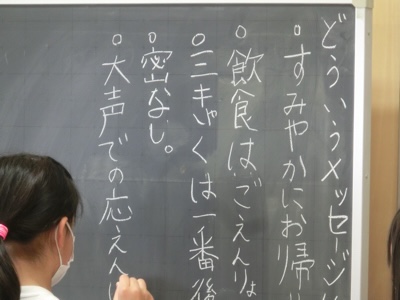 どういうメッセージ
・すみやかにお帰り
・飲食はごえんりょ
・三きゃくは一番後
・密なし。
・大声での応えん